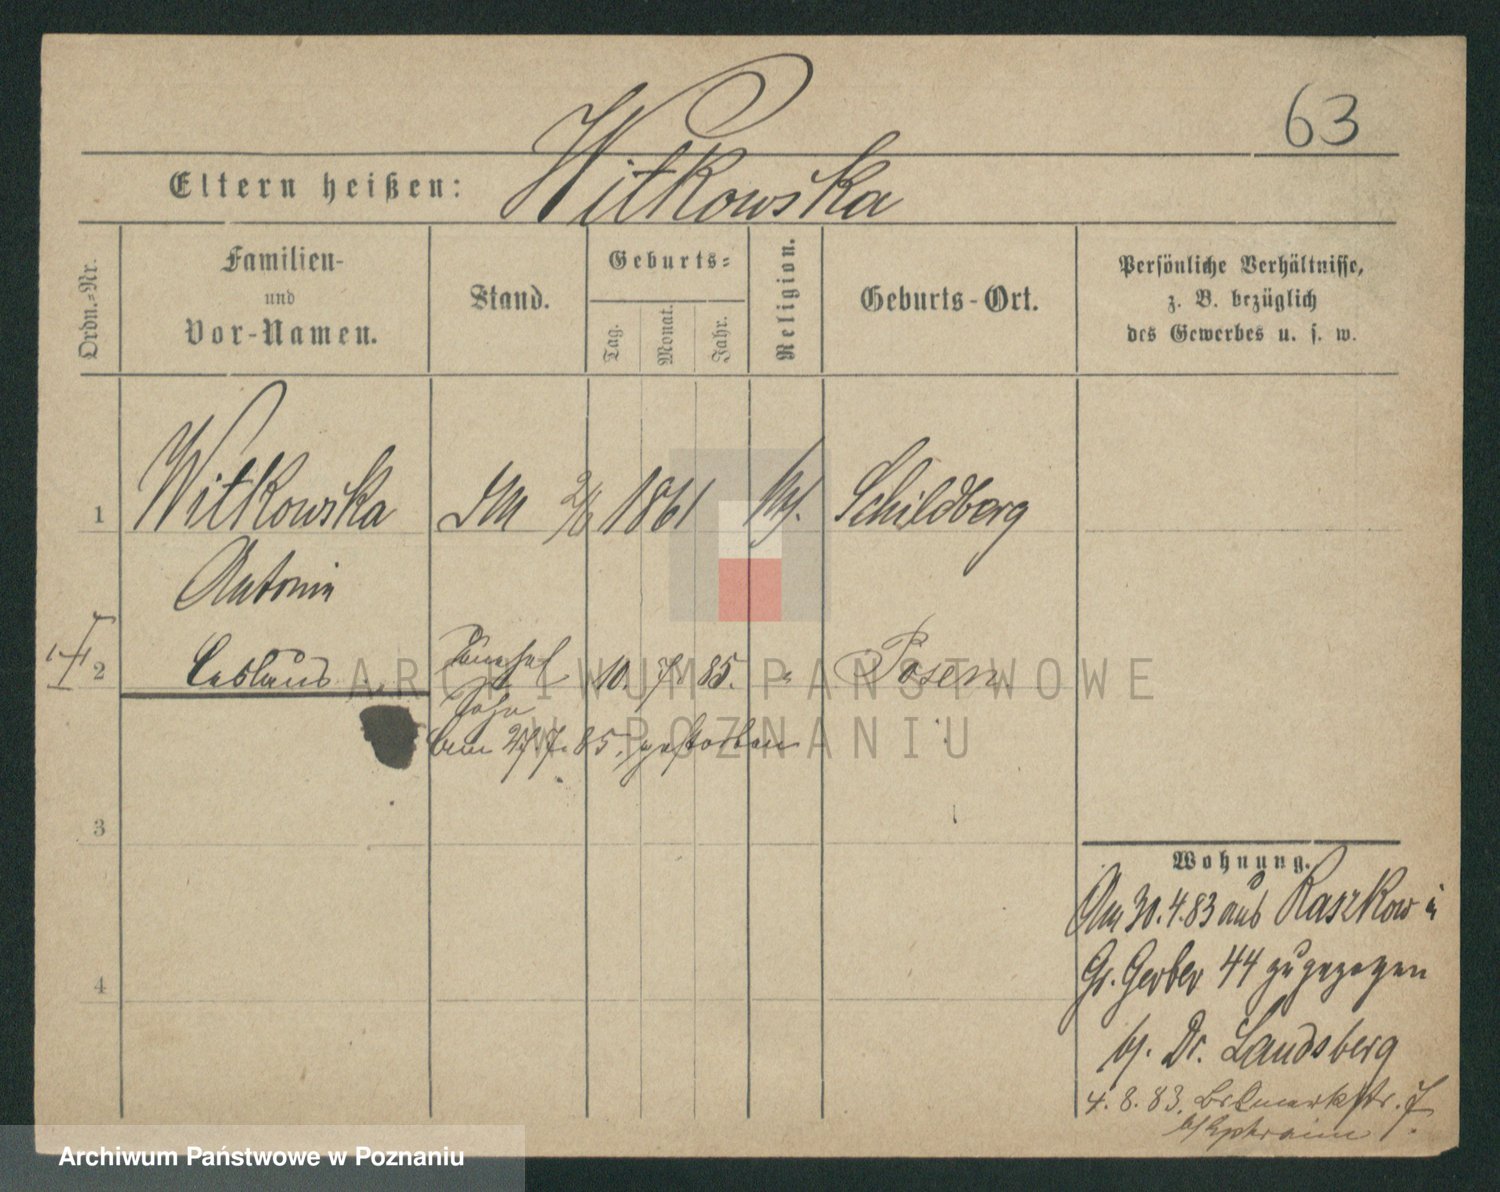 63
Eltern heißen: Witkowska
Ordn.-Nr.
Familien-
und
Vor-Namen.
Stand.
Geburts-
Tag.
Monat.
Jahr.
Religion.
Geburts-Ort.
Persönliche Verhältnisse,
z. B. bezüglich
des Gewerbes u. s. w.
1 Witkowska 1861 Schildberg
Antonie
2 Ceslaus 10. 7. 85. " Posen
Sohn
am 27/7. 85. gestorben
3
4
Wohnung.
Am 30.4.83 aus Raszkow in
Gr. Gerber 44 zugezogen
bj. Dr. Landsberg
4. 8. 83. 7.
bj Ephraim
ARCHIWUM PAŃSTWOWE
W POZNANIU
Archiwum Państwowe w Poznaniu